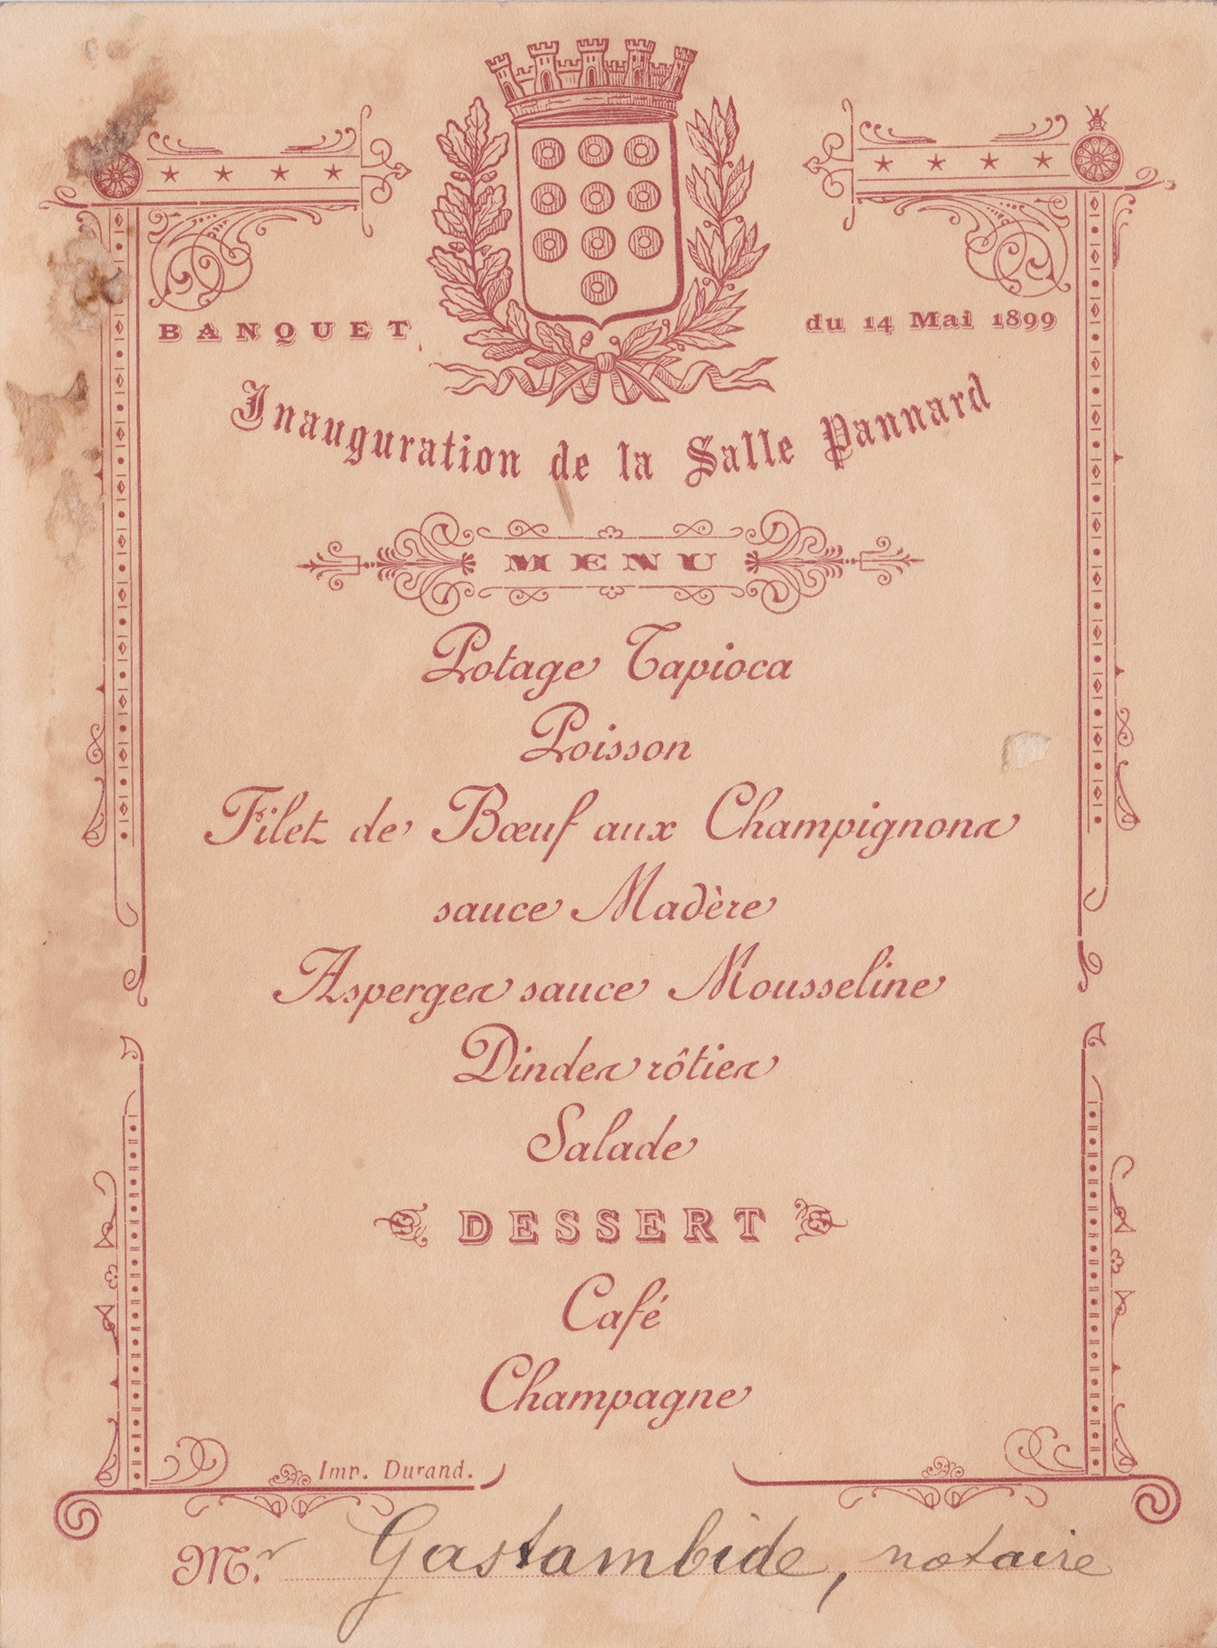 BANQUET du 14 Mai 1899
Inauguration de la Salle Pannard
MENU
Potage Tapioca
Poisson
Filet de Bœuf aux Champignons
sauce Madère
Asperges sauce Mousseline
Dindes rôties
Salade
DESSERT
Café
Champagne
Imp. Durand.
Mr. Gastambide, notaire